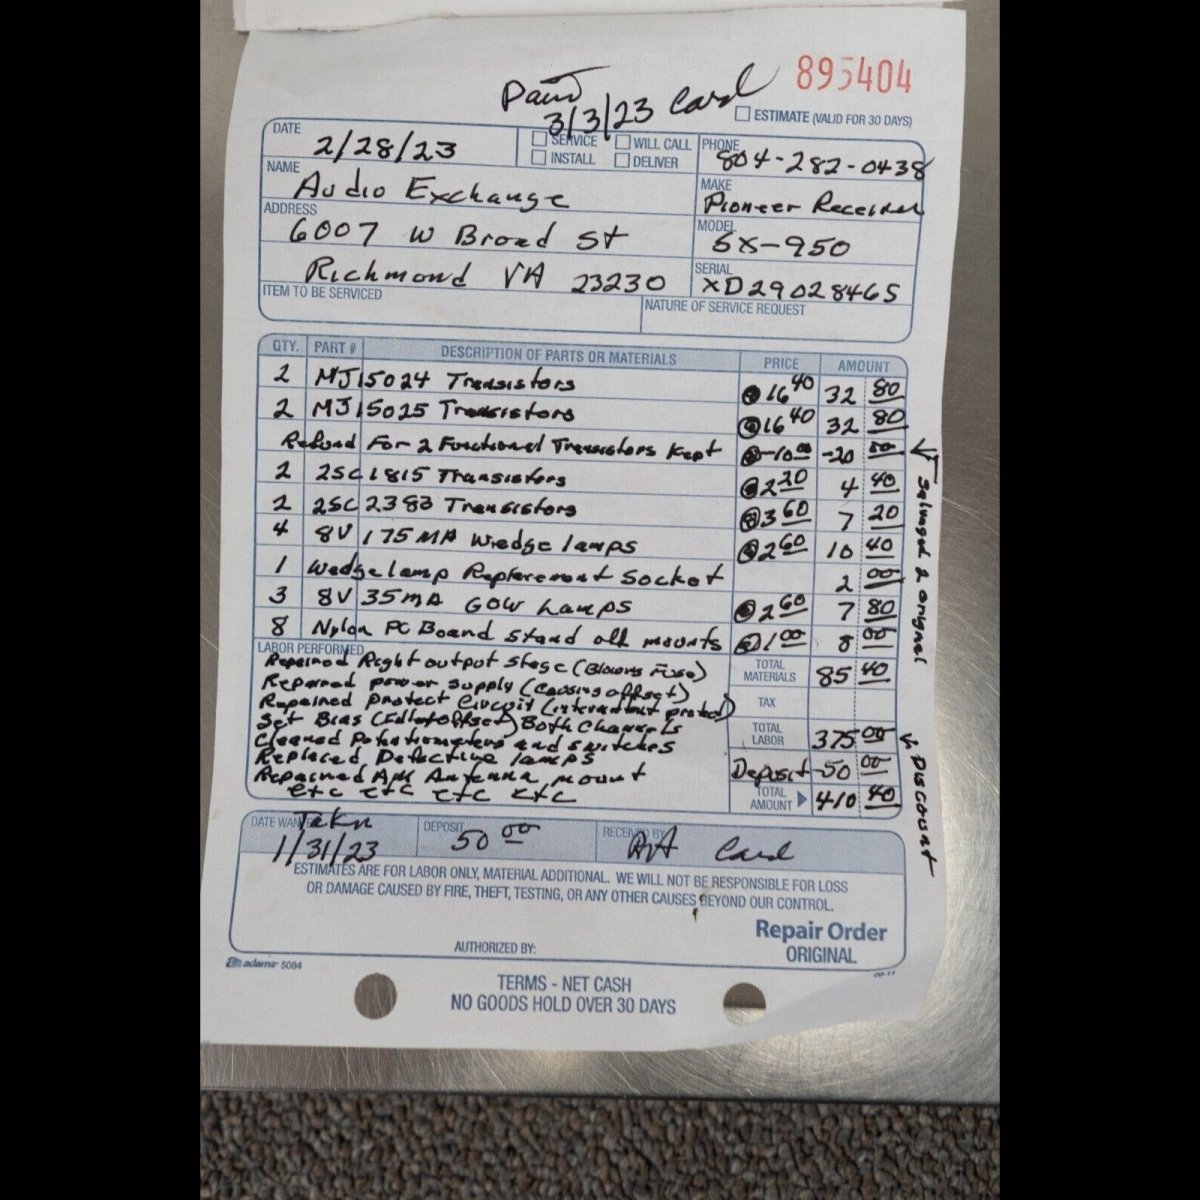 895404
Paid 3/3/23 Card
ESTIMATE (VALID FOR 30 DAYS)
DATE 2/28/23
SERVICE WILL CALL
INSTALL DELIVER
PHONE 804-282-0438
NAME Audio Exchange
MAKE Pioneer Receiver
ADDRESS 6007 W Broad St
MODEL SX-950
Richmond VA 23230
SERIAL XD29028465
ITEM TO BE SERVICED
NATURE OF SERVICE REQUEST
QTY. PART # DESCRIPTION OF PARTS OR MATERIALS PRICE AMOUNT
2 MJ15024 Transistors @ 16 40 32 80
2 MJ15025 Transistors @ 16 40 32 80
Refund For 2 Functional Transistors Kept @ -10 00 -20 00
2 2SC1815 Transistors @ 2 20 4 40
2 2SC2383 Transistors @ 3 60 7 20
4 8V 175MA Wedge lamps @ 2 60 10 40
1 Wedge lamp Replacement Socket 2 00
3 8V 35mA GOW Lamps @ 2 60 7 80
8 Nylon PC Board stand off mounts @ 1 00 8 00
Salvaged 2 original
LABOR PERFORMED
Repaired Right output stage (Blowing Fuse)
Repaired power supply (causing offset)
Repaired Protect Circuit (intermittent protect)
Set Bias (Idle+offset) Both Channels
Cleaned Potentiometers and switches
Replaced Defective lamps
Repaired AM Antenna mount
etc etc etc etc
TOTAL MATERIALS 85 40
TAX
TOTAL LABOR 375 00
Discount
Deposit -50 00
TOTAL AMOUNT 410 40
DATE WANTED Taken 1/31/23
DEPOSIT 50 00
RECEIVED BY Card
ESTIMATES ARE FOR LABOR ONLY, MATERIAL ADDITIONAL. WE WILL NOT BE RESPONSIBLE FOR LOSS
OR DAMAGE CAUSED BY FIRE, THEFT, TESTING, OR ANY OTHER CAUSES BEYOND OUR CONTROL.
Repair Order
ORIGINAL
AUTHORIZED BY:
adams 5084
09-11
TERMS - NET CASH
NO GOODS HOLD OVER 30 DAYS